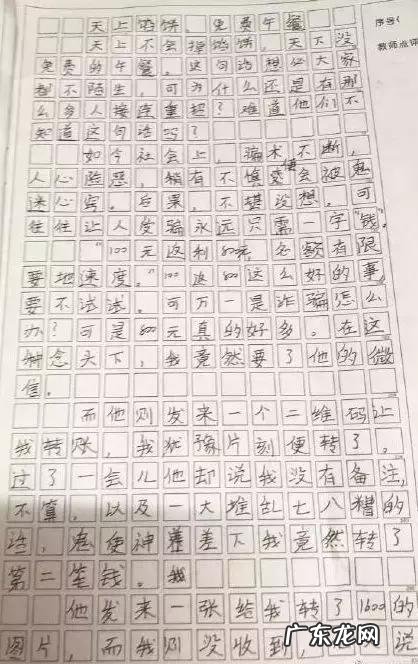 天上馅饼，免费午餐
序号(
天上不会掉馅饼，天下没
教师点评
免费的午餐。这句话想必大家
都不陌生，可为什么还是有那
么多人接连重蹈？难道他们不
知道这句话吗？
如今社会上，骗术不断，
人心险恶，稍有不慎便会被鬼
迷心窍。后果，不堪设想。可
往往让人受骗永远只需一字"钱"。
"100元返利800元，名额有限
要地速度。"100返800这么好的事，
要不试试。可万一是诈骗怎么
办？可是800元真的好多。在这
种念头下，我竟然要了他的微
信。
而他则发来一个二维码让
我转账，我犹豫片刻便转了。
过了一会儿他却说我没有备注，
不算。以及一大堆乱七八糟的
话，鬼使神差下我竟然转了
第二笔钱。我
他发来一张给我转了1600的
图片，而我则没收到，说
广东龙网